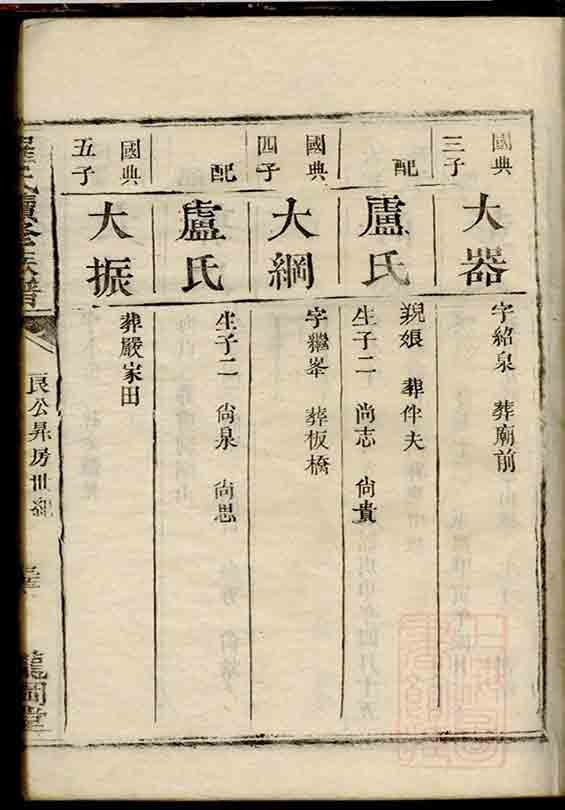 國典三子
大器
字紹泉 葬廟前
配
盧氏
親娘 葬伴夫
生子二 尚志 尚貴
國典四子
大綱
字繼峯 葬板橋
配
盧氏
生子二 尚泉 尚思
國典五子
大振
葬嚴家田
氏續修族譜
良公昇房世紀
龍岡堂